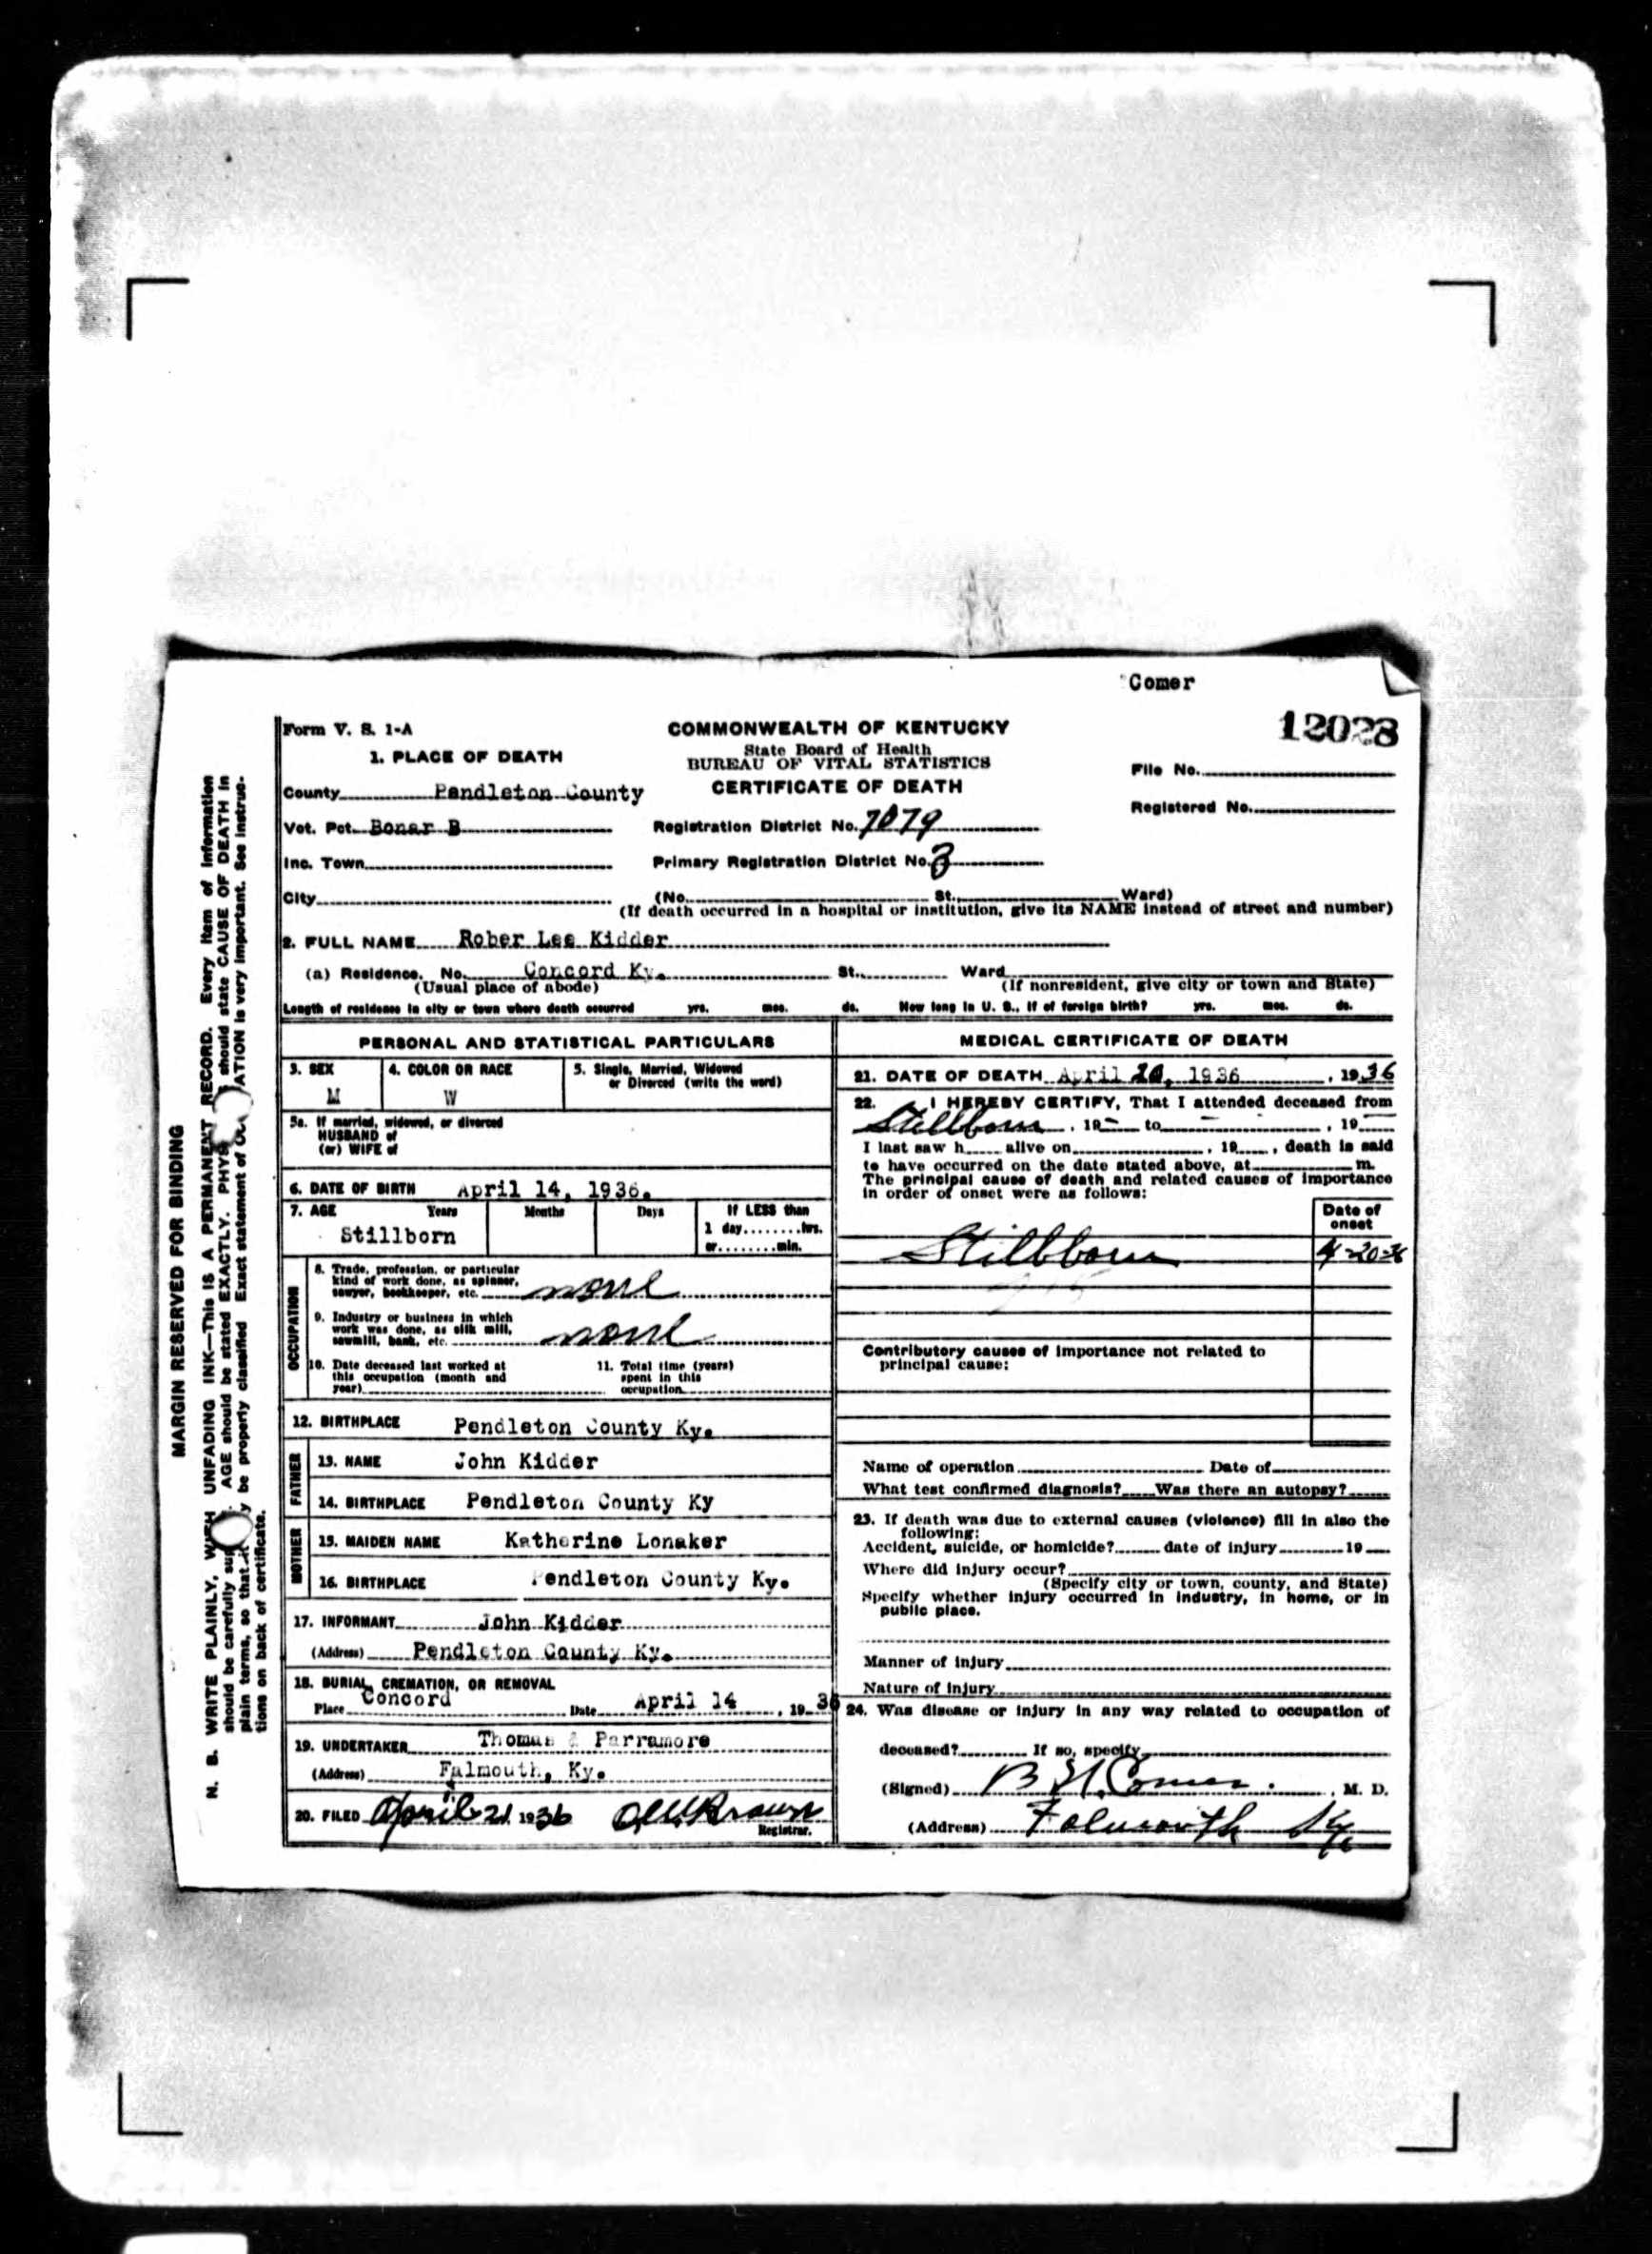 Comer
12028
Form V. S. 1-A
COMMONWEALTH OF KENTUCKY
State Board of Health
BUREAU OF VITAL STATISTICS
CERTIFICATE OF DEATH
1. PLACE OF DEATH
File No.
County Pendleton County
Registered No.
Vot. Pct. Bonar B
Registration District No. 7079
Inc. Town
Primary Registration District No. 3
City (No. St., Ward)
(If death occurred in a hospital or institution, give its NAME instead of street and number)
2. FULL NAME Rober Lee Kidder
(a) Residence. No. Concord Ky. St., Ward
(Usual place of abode) (If nonresident, give city or town and State)
Length of residence in city or town where death occurred yrs. mos. ds. How long in U. S., if of foreign birth? yrs. mos. ds.
PERSONAL AND STATISTICAL PARTICULARS
3. SEX
M
4. COLOR OR RACE
W
5. Single, Married, Widowed
or Divorced (write the word)
5a. If married, widowed, or divorced
HUSBAND of
(or) WIFE of
6. DATE OF BIRTH April 14, 1936.
7. AGE Years Months Days If LESS than
1 day........hrs.
or........min.
Stillborn
OCCUPATION
8. Trade, profession, or particular
kind of work done, as spinner,
sawyer, bookkeeper, etc. none
9. Industry or business in which
work was done, as silk mill,
sawmill, bank, etc. none
10. Date deceased last worked at
this occupation (month and
year)
11. Total time (years)
spent in this
occupation
12. BIRTHPLACE Pendleton County Ky.
FATHER
13. NAME John Kidder
14. BIRTHPLACE Pendleton County Ky
MOTHER
15. MAIDEN NAME Katherine Lonaker
16. BIRTHPLACE Pendleton County Ky.
17. INFORMANT John Kidder
(Address) Pendleton County Ky.
18. BURIAL, CREMATION, OR REMOVAL
Place Concord Date April 14, 1936
19. UNDERTAKER Thomas & Parramore
(Address) Falmouth, Ky.
20. FILED April 21 1936
Registrar.
MEDICAL CERTIFICATE OF DEATH
21. DATE OF DEATH April 20, 1936, 1936
22. I HEREBY CERTIFY, That I attended deceased from
Stillborn, 19— to, 19
I last saw h alive on, 19, death is said
to have occurred on the date stated above, at m.
The principal cause of death and related causes of importance
in order of onset were as follows:
Date of
onset
Stillborn 4-20-36
Contributory causes of importance not related to
principal cause:
Name of operation Date of
What test confirmed diagnosis? Was there an autopsy?
23. If death was due to external causes (violence) fill in also the
following:
Accident, suicide, or homicide? date of injury 19
Where did injury occur?
(Specify city or town, county, and State)
Specify whether injury occurred in industry, in home, or in
public place.
Manner of injury
Nature of injury
24. Was disease or injury in any way related to occupation of
deceased? If so, specify
(Signed) B N Comer, M. D.
(Address) Falmouth Ky
MARGIN RESERVED FOR BINDING
N. B. WRITE PLAINLY, WITH UNFADING INK—This IS A PERMANENT RECORD. Every item of information
should be carefully AGE should be stated EXACTLY. should state CAUSE OF DEATH in
plain terms, so that it be properly classified. Exact statement of is very important. See instruc-
tions on back of certificate.